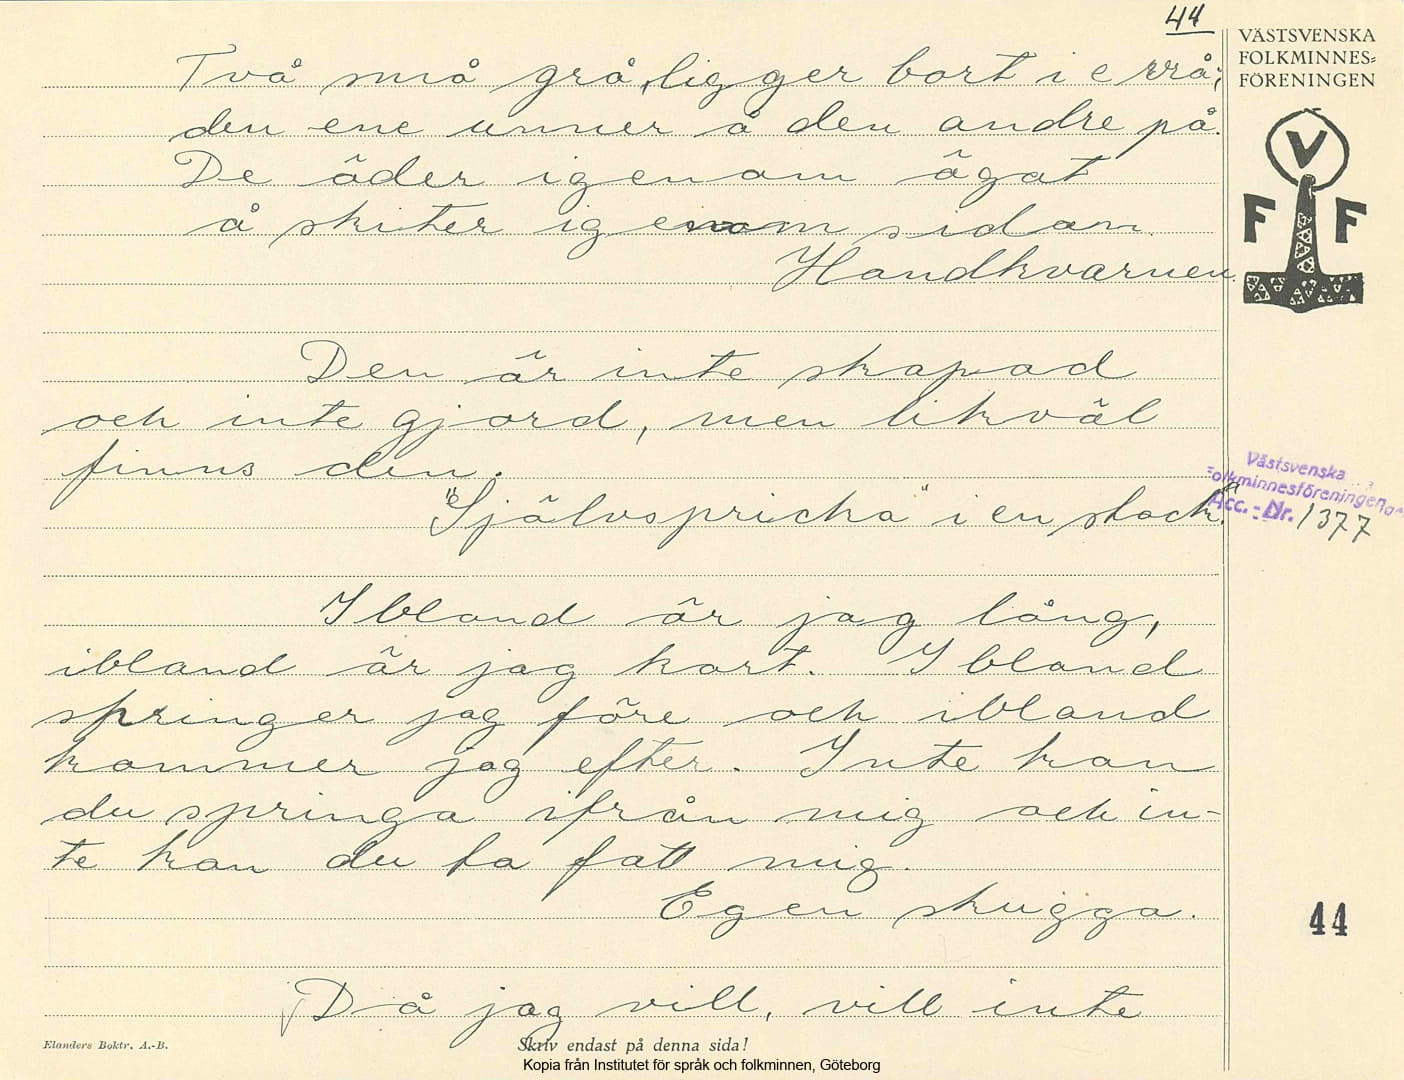 44
VÄSTSVENSKA
FOLKMINNES=
FÖRENINGEN
V
F F
Två små grå, ligger bort i e vrå;
den ene unner å den andre på.
De äder igenom ögat
å skiter igenom sidan.
Handkvarnen.
Den är inte skapad
och inte gjord, men likväl
finns den.
"Självspricka" i en stock.
Västsvenska
Folkminnesföreningen
Acc. - Nr. 1377
Ibland är jag lång,
ibland är jag kort. Ibland
springer jag före och ibland
kommer jag efter. Inte kan
du springa ifrån mig och in-
te kan du ta fatt mig.
Egen skugga.
44
Då jag vill, vill inte
Elanders Boktr. A.-B.
Skriv endast på denna sida!
Kopia från Institutet för språk och folkminnen, Göteborg